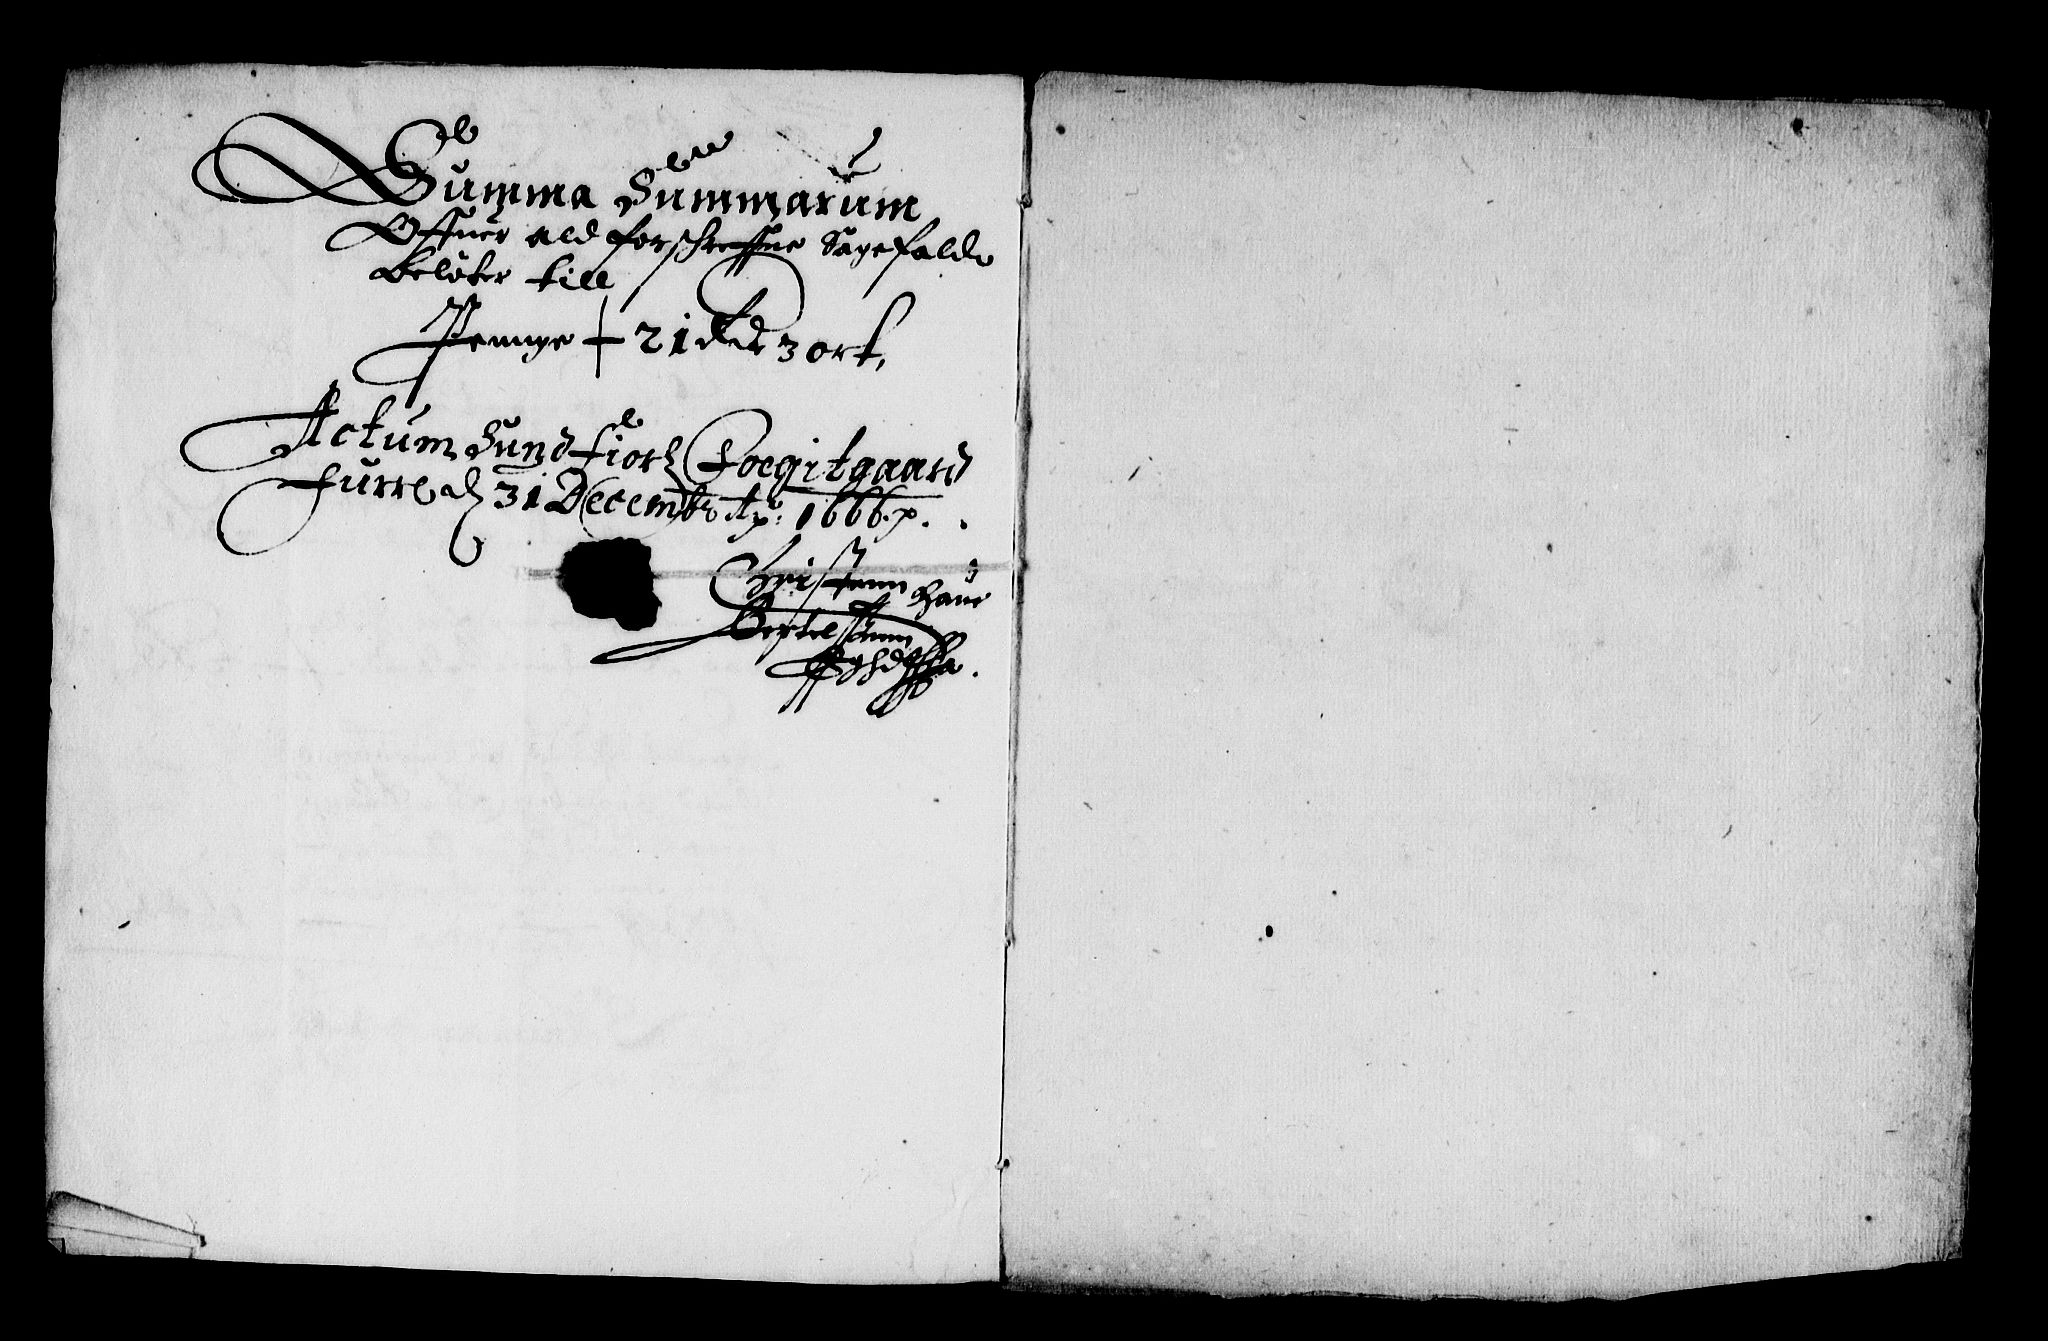 Summa Summarum
Offuer ald forschreffne Sagefald
Beløber till
Pennge + 21 Rdr 3 ort,
Actum Sundfiord Foegitgaard
Furre d 31 Decembr Ao: 1666.
Christenn
Bertelsønn